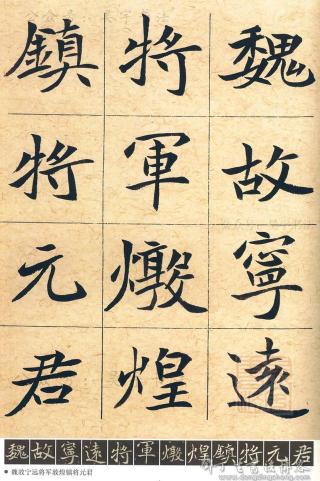 魏故寧遠
將軍燉煌
鎮將元君
魏故寧遠將軍燉煌鎮將元君
● 魏故宁远将军敦煌镇将元君